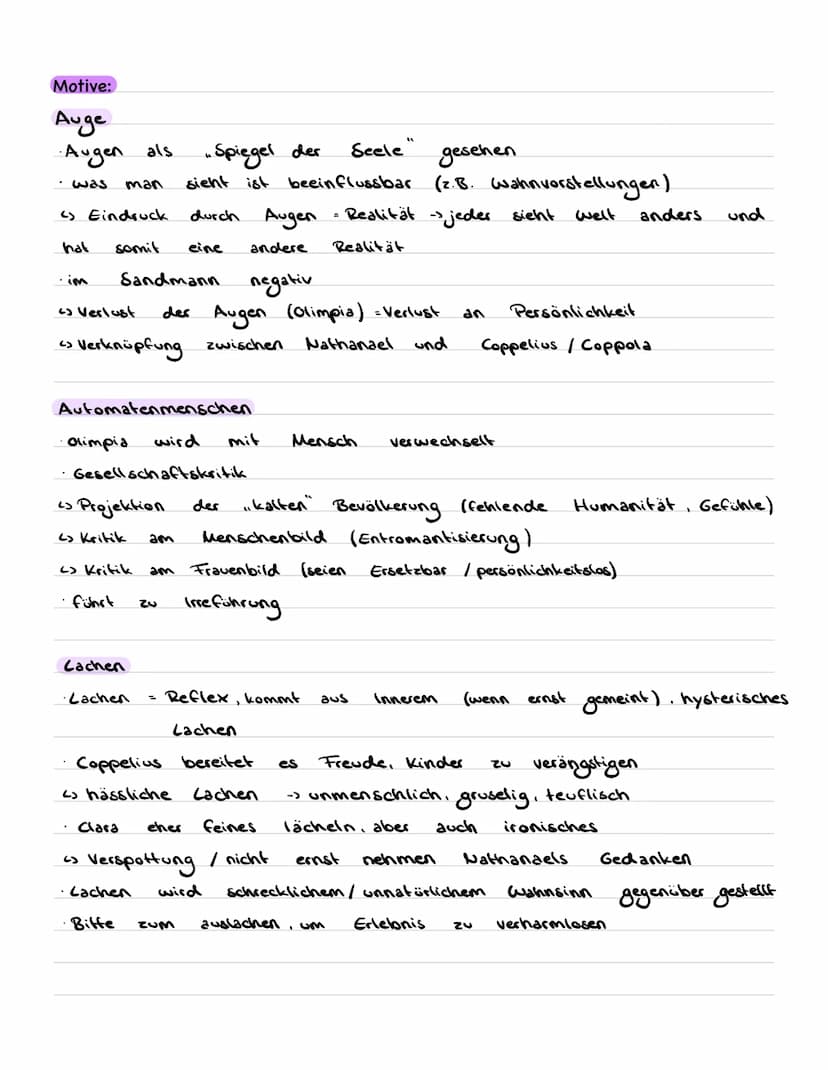 Motive:
Auge
· Augen als „Spiegel der Seele" gesehen
· was man sieht ist beeinflussbar (z.B. Wahnvorstellungen)
↳ Eindruck durch Augen = Realität → jeder sieht Welt anders und
hat somit eine andere Realität
· im Sandmann negativ
↳ Verlust der Augen (Olimpia) = Verlust an Persönlichkeit
↳ Verknüpfung zwischen Nathanael und Coppelius / Coppola
Automatenmenschen
· Olimpia wird mit Mensch verwechselt
· Gesellschaftskritik
↳ Projektion der „kalten" Bevölkerung (fehlende Humanität, Gefühle)
↳ Kritik am Menschenbild (Entromantisierung)
↳ Kritik am Frauenbild (seien Ersetzbar / persönlichkeitslos)
· führt zu Irreführung
Lachen
· Lachen = Reflex, kommt aus Innerem (wenn ernst gemeint), hysterisches
Lachen
· Coppelius bereitet es Freude, Kinder zu verängstigen
↳ hässliche Lachen → unmenschlich, gruselig, teuflisch
· Clara eher feines lächeln, aber auch ironisches
↳ Verspottung / nicht ernst nehmen Nathanaels Gedanken
· Lachen wird schrecklichem / unnatürlichem Wahnsinn gegenüber gestellt
· Bitte zum auslachen, um Erlebnis zu verharmlosen